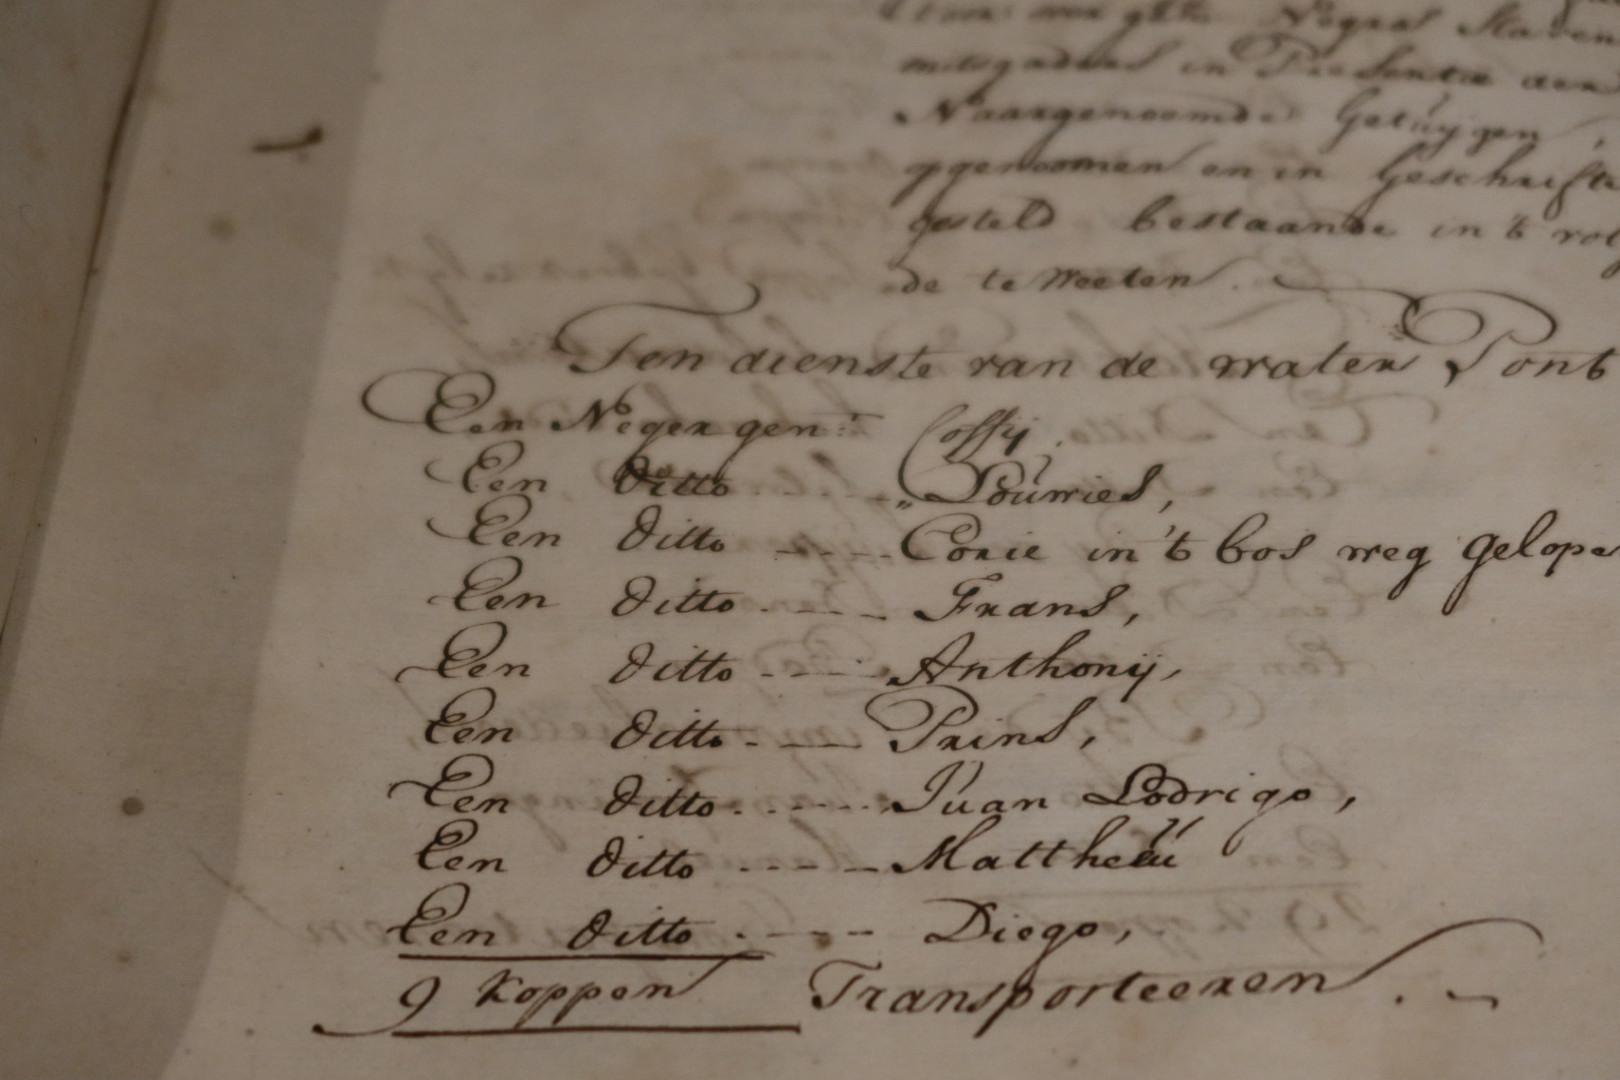 Negras Slaven
mitsgaders in Presentie den
Naargenoemde Getuijgen,
opgenoomen en in Geschrifte
gesteld bestaande in't vol
de te Weeten.
Ten dienste van de water Pont
Een Neger gen: Coffij.
Een ditto „ Pouwies,
Een ditto ---- Corie in't bos weg gelope
Een ditto ---- Frans,
Een ditto ---- Anthonij,
Een ditto ---- Prins,
Een ditto ---- Juan Lodrigo,
Een ditto ---- Mattheeu
Een ditto ---- Diego,
9 Koppen Transporteeren.